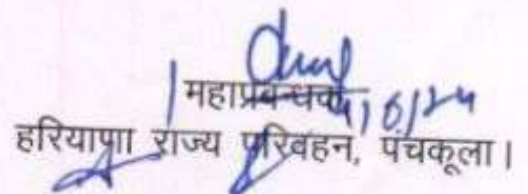 महाप्रबन्धक
हरियाणा राज्य परिवहन, पंचकूला।